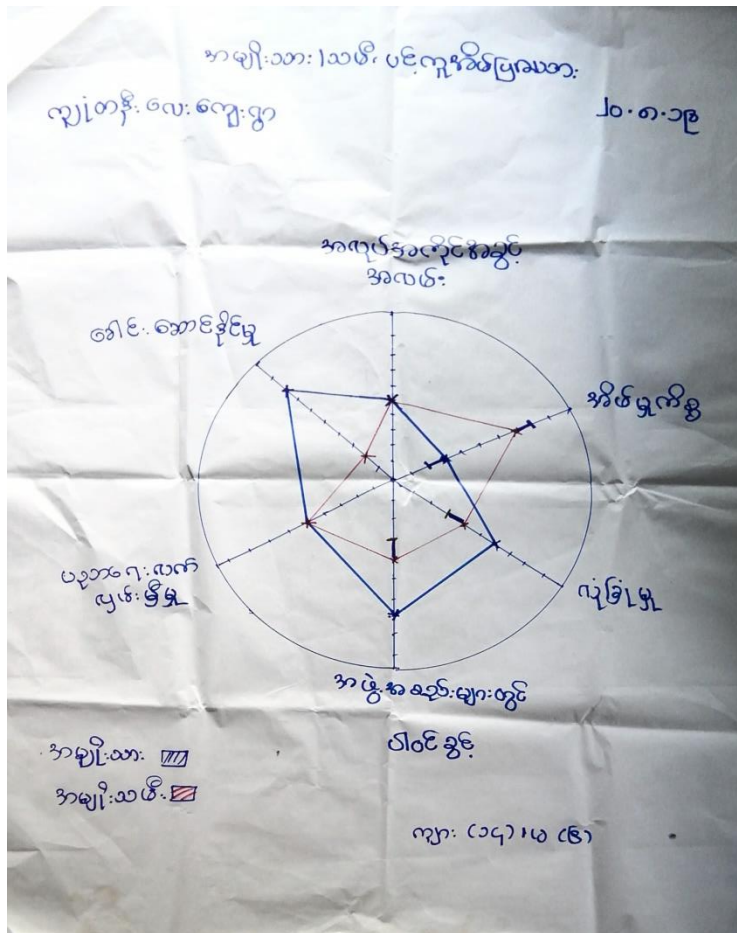 အမျိုးသား၊သမီး ပင့်ကူအိမ်ပြဿနာ:
ကျွံတနီး လေးကျေးရွာ
၂၀.၈.၁၉
အလုပ်အကိုင်အခွင့်
အလမ်း
ခေါင်းဆောင်နိုင်မှု
အိမ်မှုကိစ္စ
ပညာရေးလက်
လှမ်းမှီမှု
လုံခြုံမှု
အဖွဲ့အစည်းများတွင်
ပါဝင်ခွင့်
အမျိုးသား
အမျိုးသမီး
ကျား (၁၄) ၊ မ (၆)